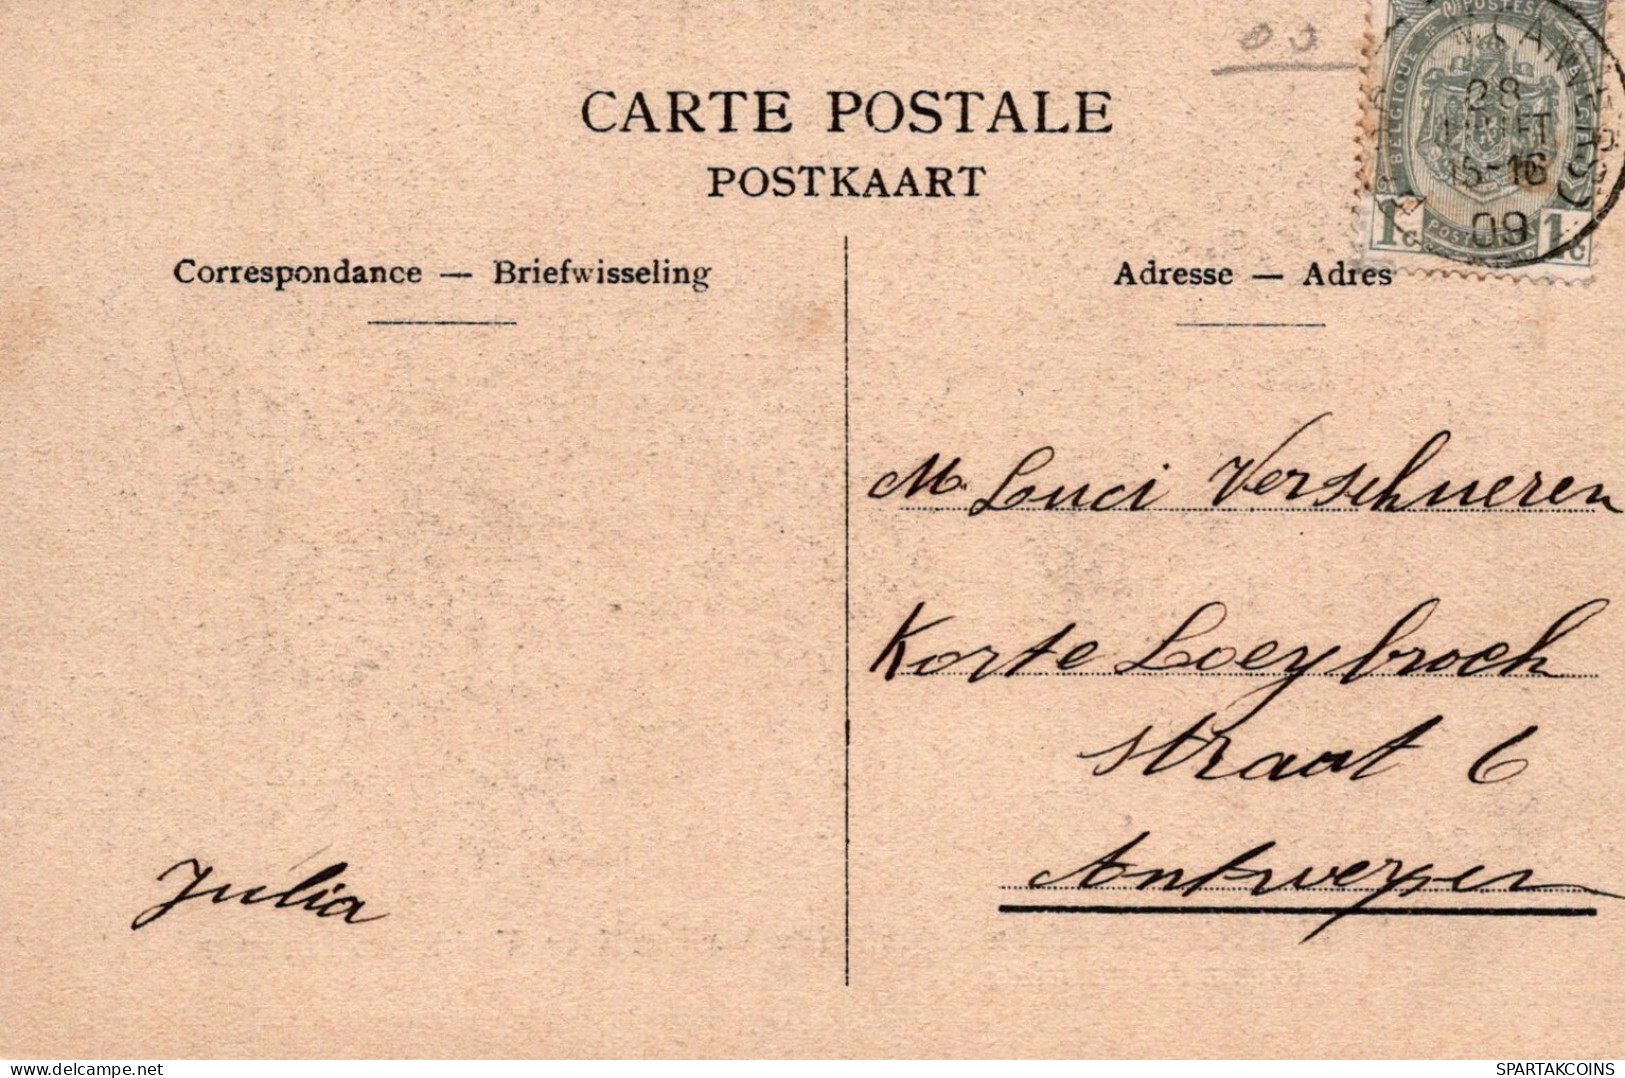 CARTE POSTALE
POSTKAART
Correspondance — Briefwisseling
Adresse — Adres
POSTES
BELGIQUE
BELGIË
1c 1c
28
JUILLET
15-16
09
M. Luci Verschueren
Korte Loeybroch
straat 6
Antwerpen
Julia
delcampe.net
SPARTAKCOINS